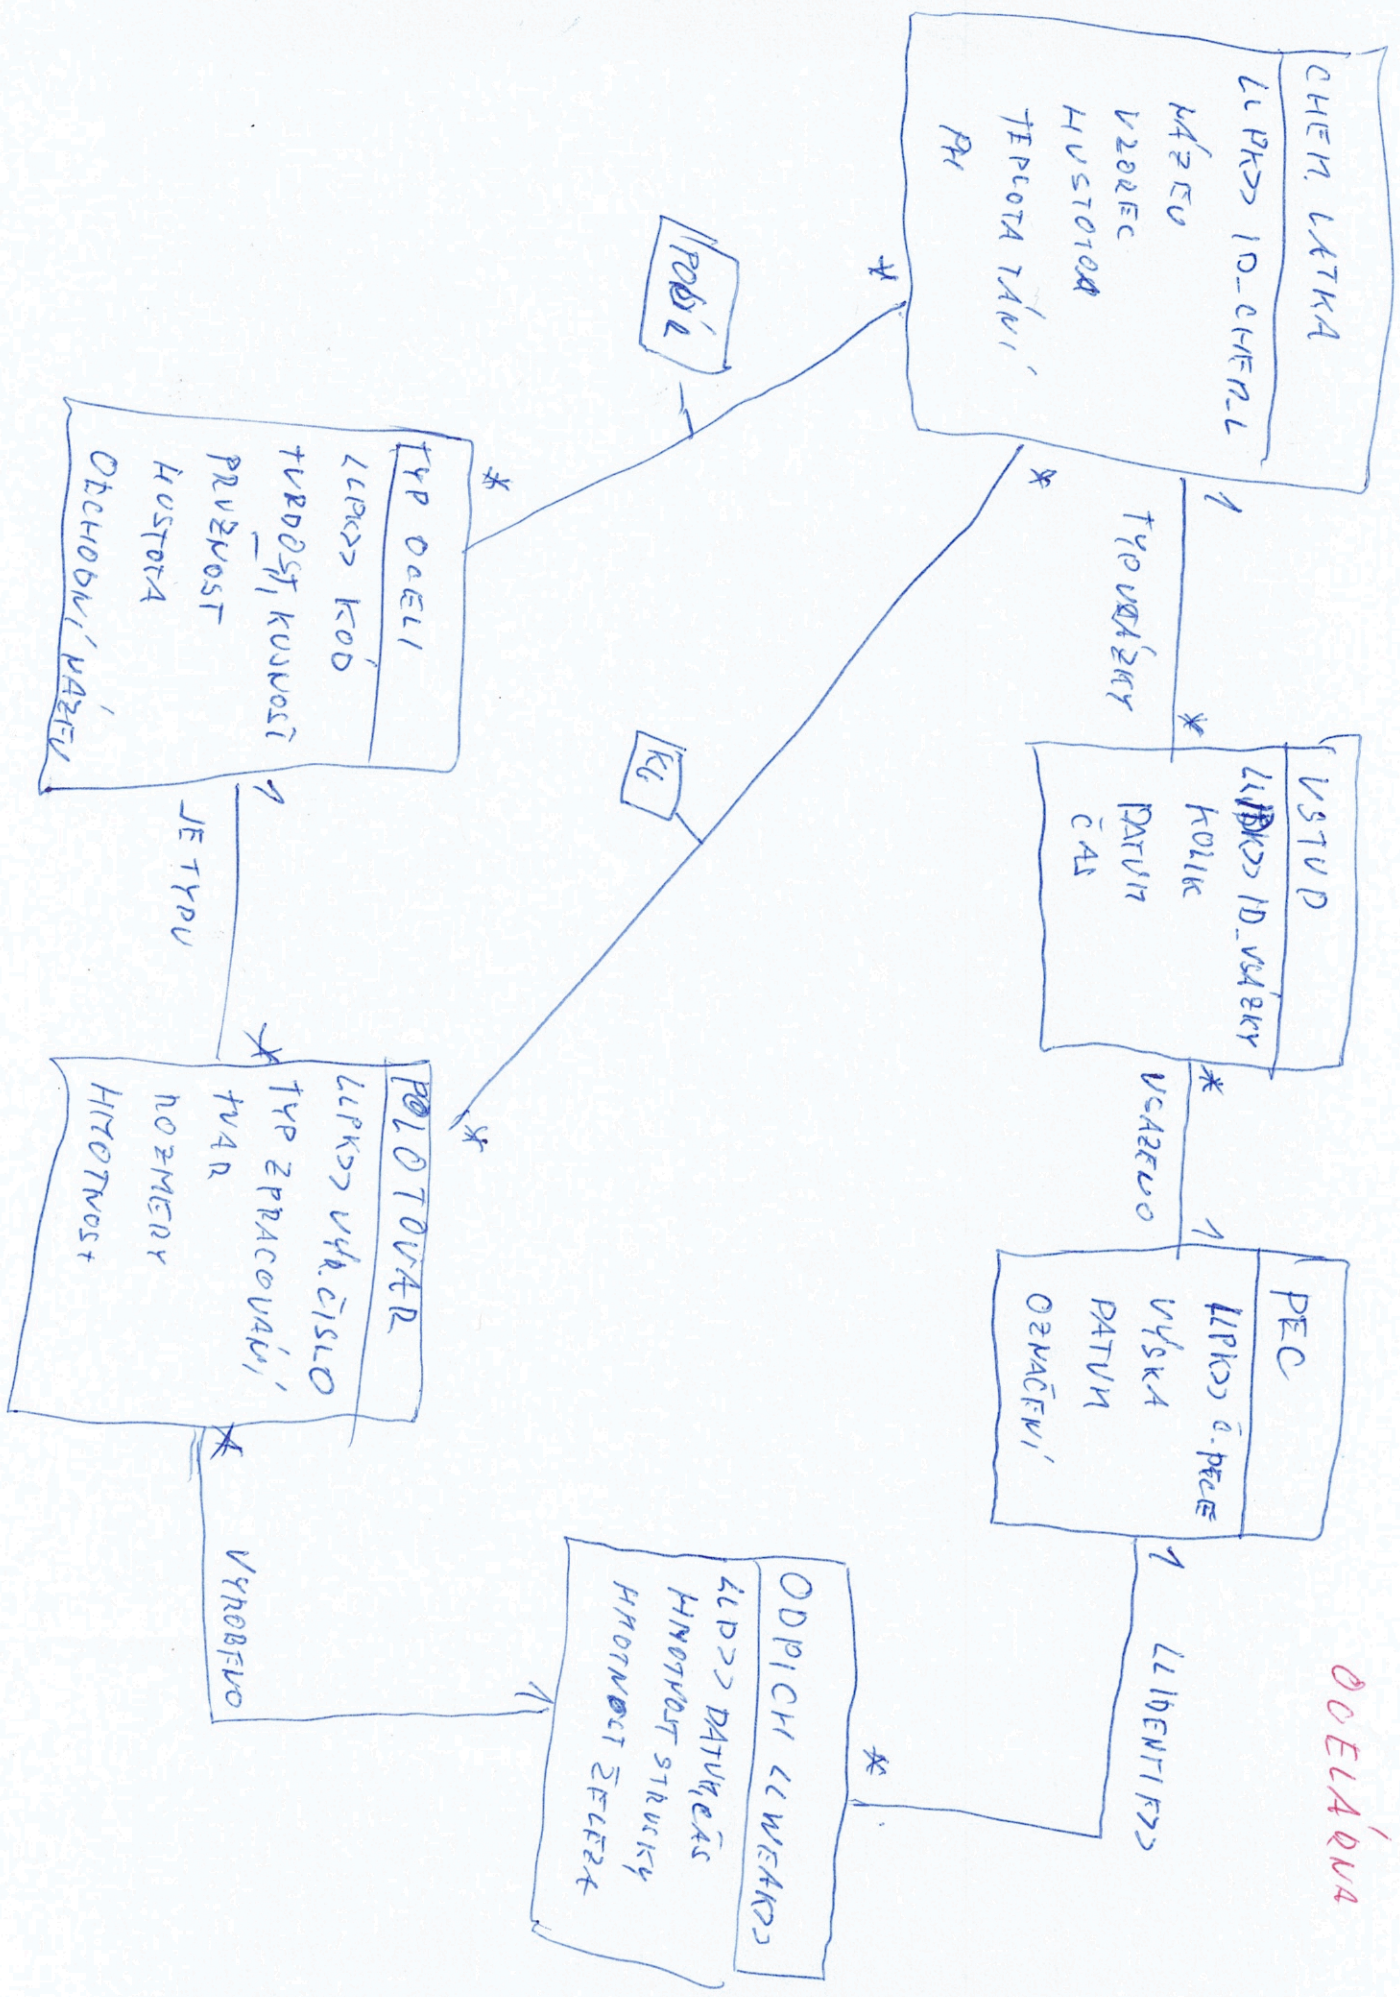 OCELÁRNA
CHEM. LATKA
<<PK>> ID_CHEM_L
NÁZEV
VZOREC
HUSTOTA
TEPLOTA TÁNÍ
PH
1
TYP VSÁZKY
*
VSTUP
<<PK>> ID_VSÁZKY
KOLIK
DATUM
ČAS
*
VSAZENO
1
PEC
<<PK>> Č. PECE
VÝŠKA
DATUM
OZNAČENÍ
1
<<IDENTIF>>
*
ODPICH <<WEAK>>
<<D>> DATUM, ČAS
HMOTNOST STRUSKY
HMOTNOST ŽELEZA
1
VYROBENO
*
POLOTOVAR
<<PK>> VÝR. ČÍSLO
TYP ZPRACOVÁNÍ
TVAR
ROZMERY
HMOTNOST
*
JE TYPU
1
TYP OCELI
<<PK>> KÓD
TVRDOST, KUJNOST
PRUŽNOST
HUSTOTA
OBCHODNÍ NÁZEV
*
PODÍL
*
*
KG
*